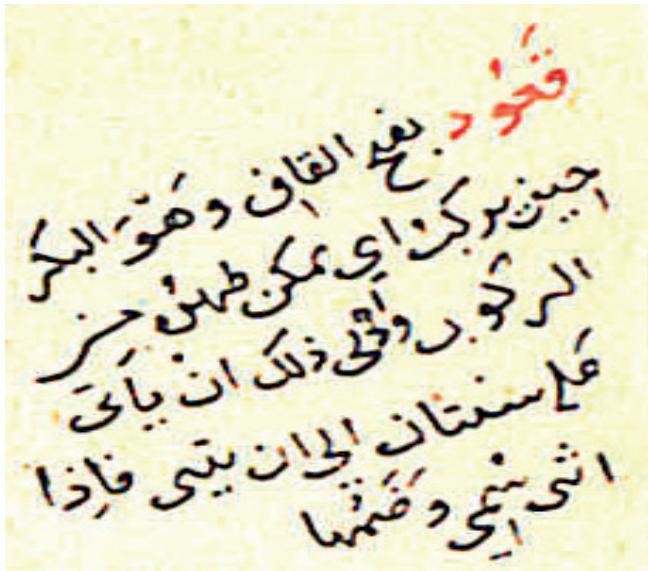 قَعُود بفتح القاف و هَوَ البَكر
احين يركب اي يمكن ظهره من
الركوب ذلك ان ياتى
علي سنتان الي ان يثنى فاِذا
اثنى